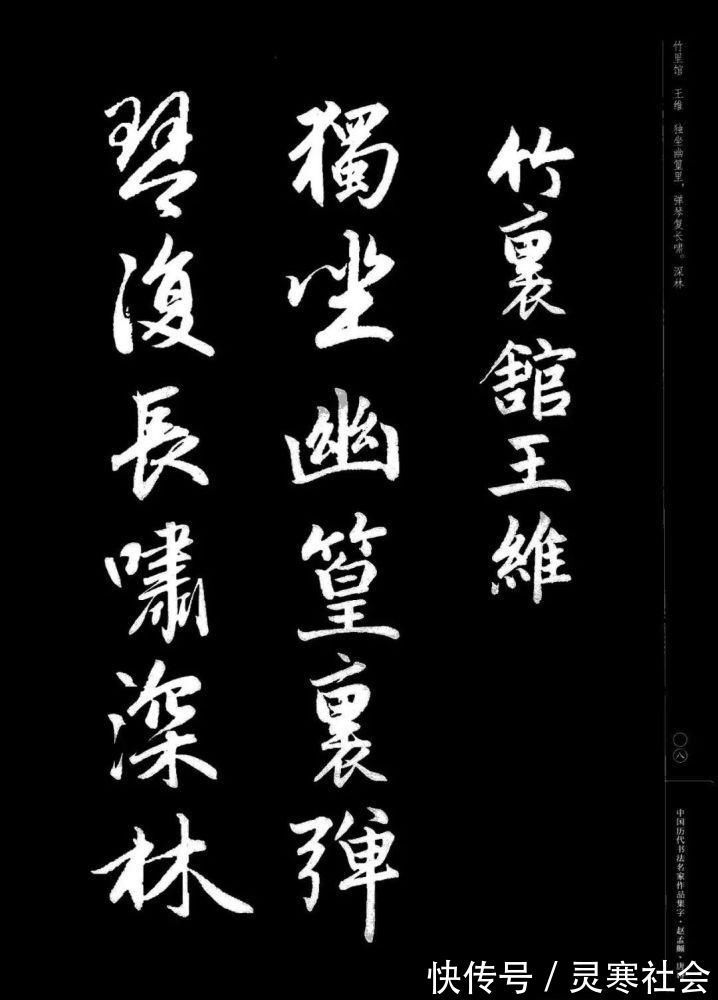 竹里馆 王维 独坐幽篁里，弹琴复长啸。深林
竹裏舘王維
獨坐幽篁裏彈
琴復長嘯深林
〇八
中国历代书法名家作品集字·赵孟頫·唐
快传号／灵寒社会